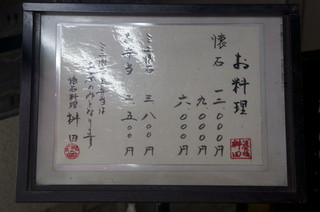 お料理
懐石 一二、〇〇〇円
九、〇〇〇円
六、〇〇〇円
ミニ懐石 三、八〇〇円
弁当 二、五〇〇円
ミニ懐石、弁当は
お昼のみとなります
懐石料理 桝田